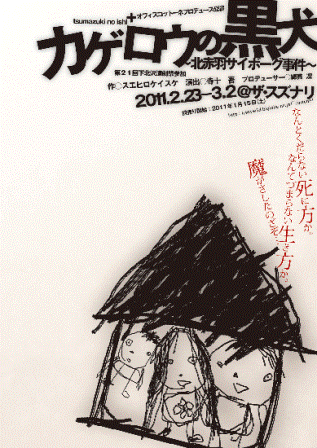 tsumazuki no ishi
+オフィススリー〇プロデュース公演
カゲロウの黒犬
~北赤羽サイボーグ事件~
第21回下北沢演劇祭参加
作○スエヒロケイスケ 演出○寺十 吾 プロデューサー○
2011.2.23—3.2@ザ・スズナリ
2011年1月15日(土)
なんとくだらない死に方か。
なんてつまらない生き方か。
魔がさしたのさそ